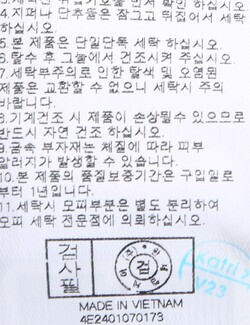 4.지퍼나 단추들은 잠그고 뒤집어서 세탁
하십시오.
5.본 제품은 단일단독 세탁 하십시오.
6.탈수 후 그늘에서 건조시켜 주십시오.
7.세탁부주의로 인한 탈색 및 오염된
제품은 교환할 수 없으니 세탁시 주의
바랍니다.
8.기계건조 시 제품이 손상될수 있으므로
반드시 자연 건조 하십시오.
9.금속 부자재는 체질에 따라 피부
알러지가 발생할 수 있습니다.
10.본 제품의 품질보증기간은 구입일로
부터 1년입니다.
11.세탁시 모피부분은 별도 분리하여
모피 세탁 전문점에 의뢰하십시오.
검사필
검
Katri
V23
MADE IN VIETNAM
4E2401070173